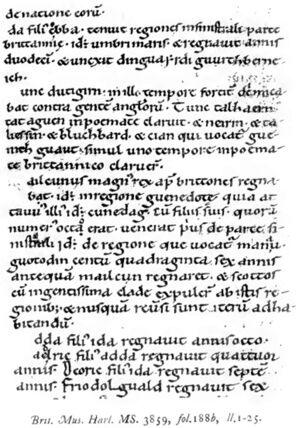 denatione eorū.
da filiꝰ eobba. tenuit regiones insinistrali parte
brittannię. idē umbrimaris. & regnauit annis
duodecī. & unexit dinguayrdi guurthberne-
ich.
unc dutigirn. inillo tempore fortit̄ dimica
bat contra gentē anglorū. Tunc talhaern
tataguen inpoemate claruit. & neirin. & ta
liessin. & bluchbard. & cian qui uocat̄ gue-
nith guaut. simul uno tempore inpoema-
te brittannico claruer̄.
ailcunus magnꝰ rex ap̄ brittones regna
bat. idē inregione guenedotę quia at
tauuꝰ illiꝰ idē cunedag. cū filiis suis. quorū
numerꝰ octo erat. uenerat priꝰ de parte si-
nistrali idē de regione que uocat̄ manau
guotodin centū quadraginta sex annis
antequā mailcun regnaret. & scottos
cū ingentissima clade expuler̄ ab istis re-
gionibꝰ. & nusquā reuersi sunt iterū adha-
bitandū.
dda filiꝰ ida regnauit annis octo.
adric filiꝰ adda regnauit quattuor
annis. Deoric filiꝰ ida regnauit septē
annis. Friodolguald regnauit sex
Brit. Mus. Harl. MS. 3859, fol. 188b, ll. 1-25.